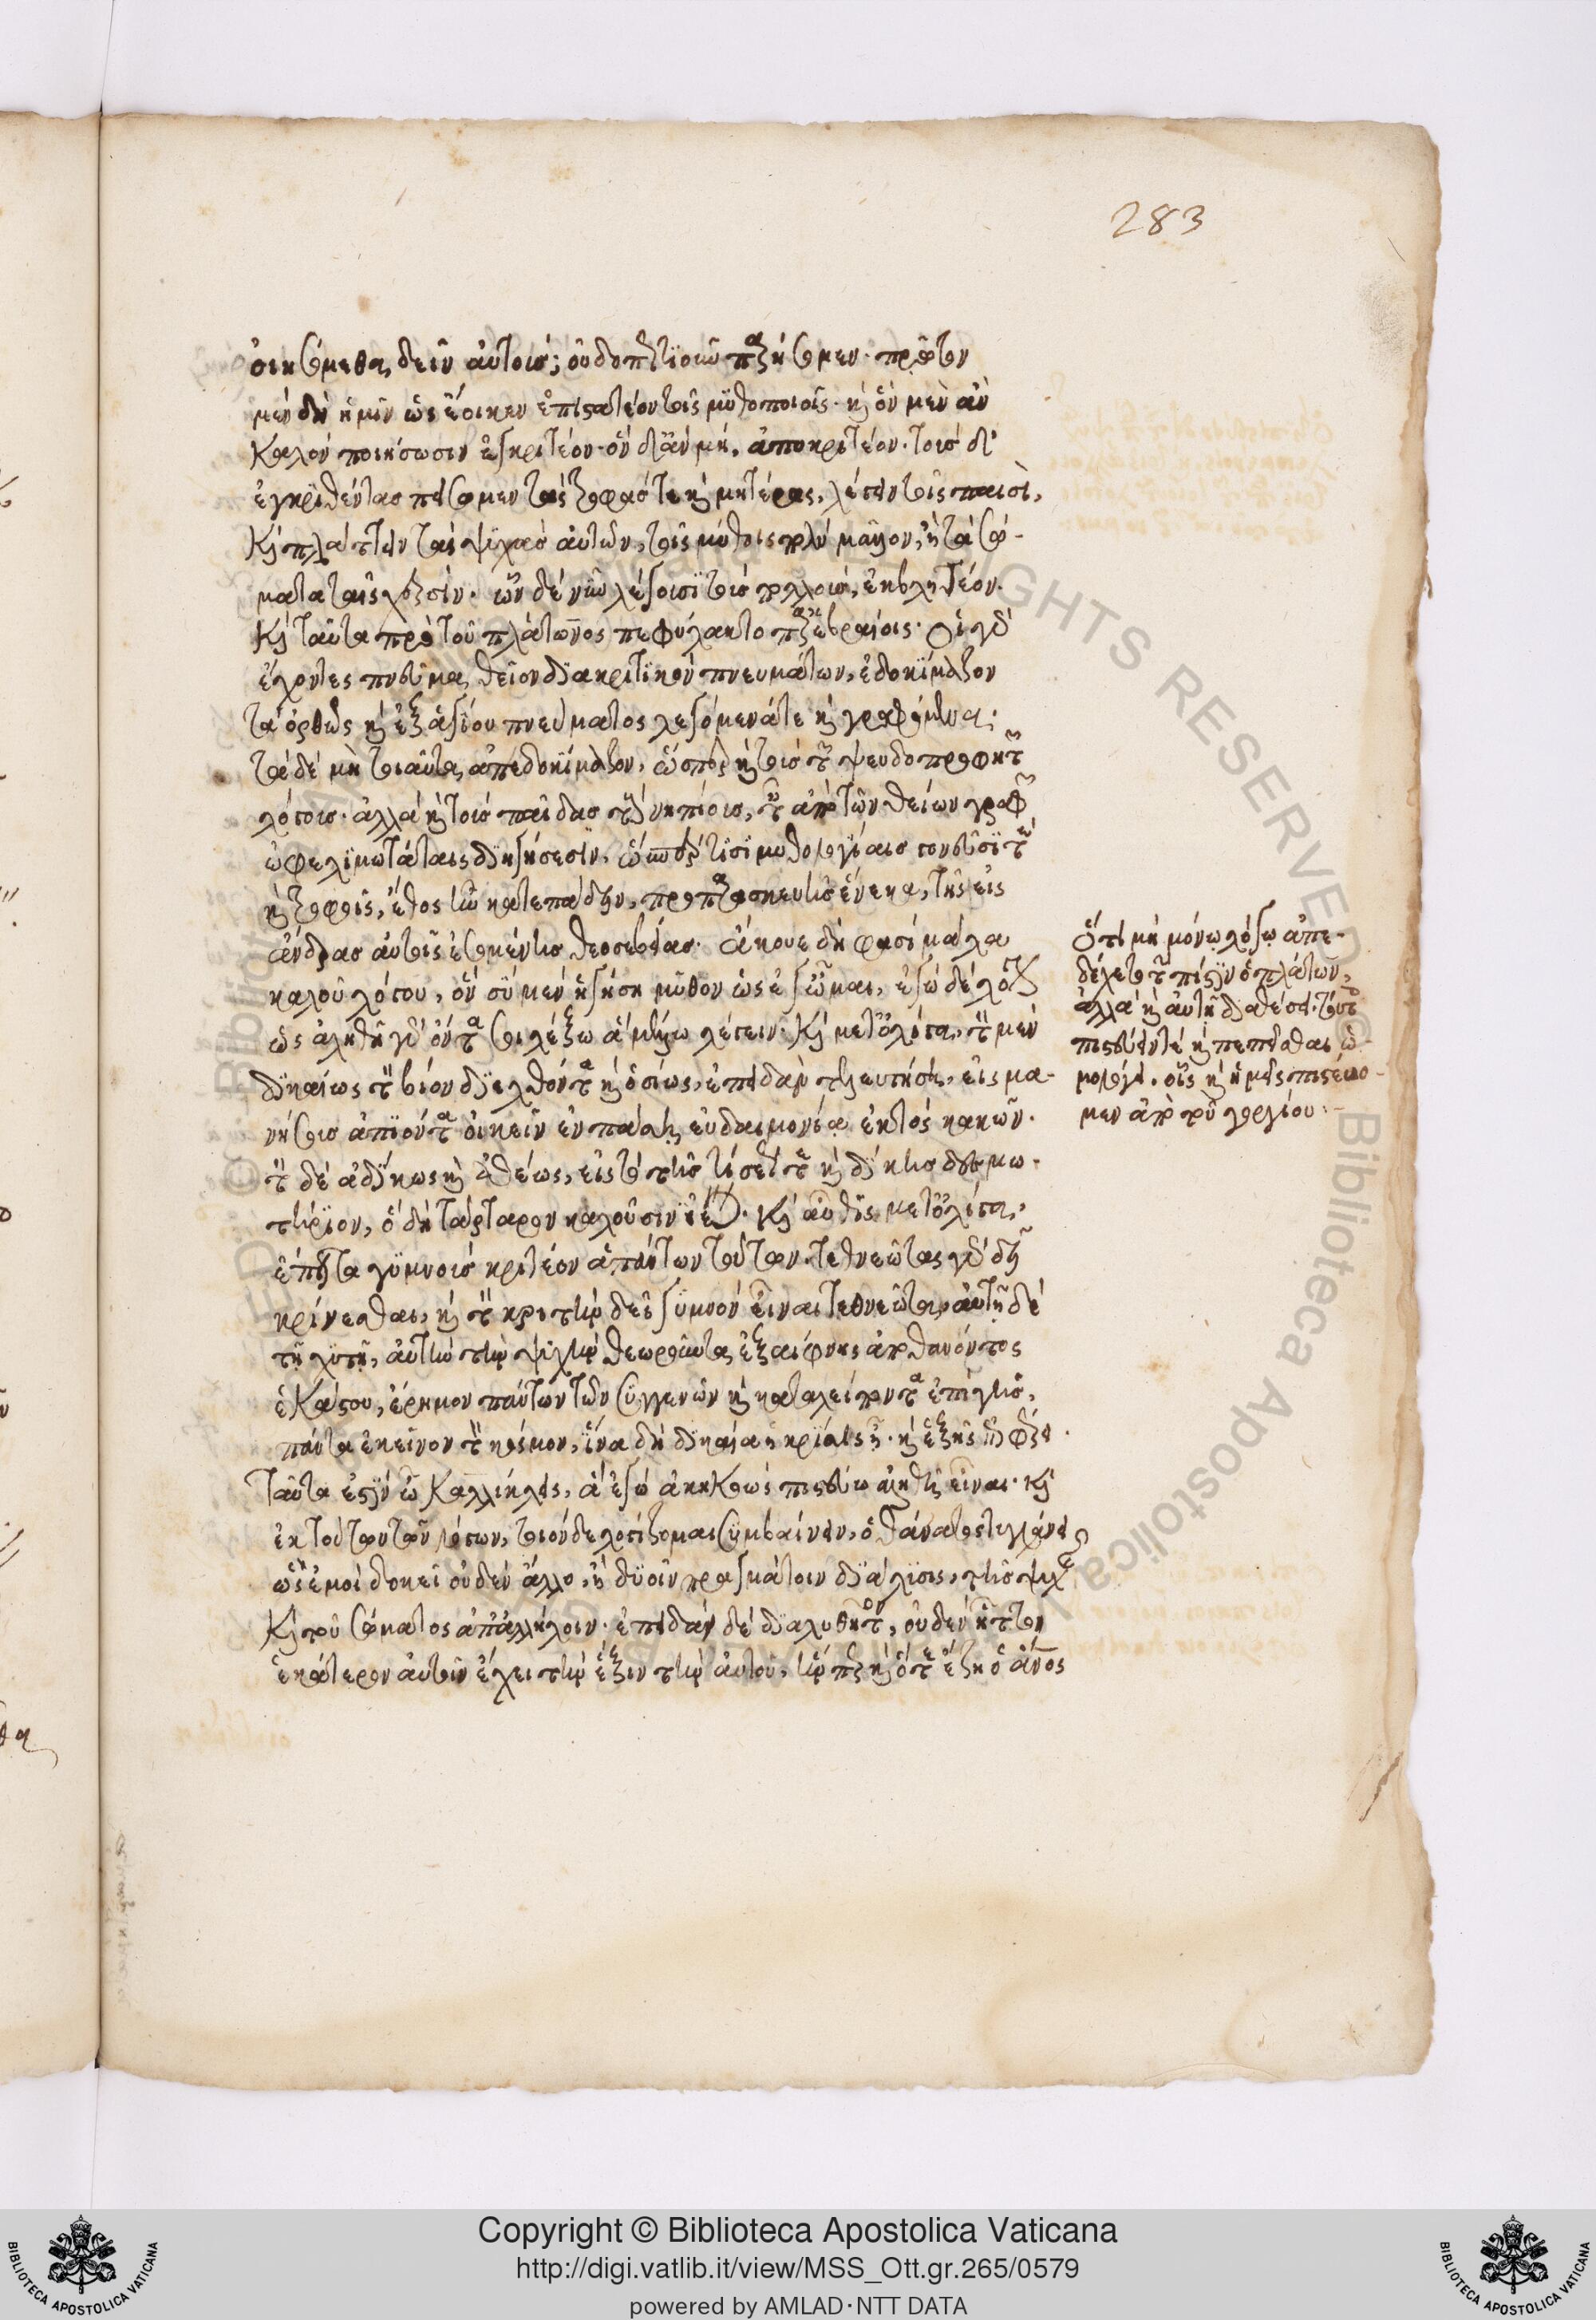 283
οἰησόμεθα δεῖν αὐτούς; οὐδοπωστιοῦν παρήσομεν. πρῶτον
μὲν δὴ ἡμῖν ὡς ἔοικεν ἐπιστατέον τοῖς μυθοποιοῖς. καὶ ὃν μὲν ἂν
καλὸν ποιήσωσιν ἐγκριτέον. ὃν δ' ἂν μή, ἀποκριτέον. τοὺς δ'
ἐγκριθέντας πείσομεν τὰς τροφούς τε καὶ μητέρας, λέγειν τοῖς παισί,
καὶ πλάττειν τὰς ψυχὰς αὐτῶν, τοῖς μύθοις πολὺ μᾶλλον, ἢ τὰ σώ-
ματα ταῖς χερσίν. ὧν δὲ νῦν λέγουσι τοὺς πολλούς, ἐκβλητέον.
καὶ ταῦτα πρὸ τοῦ πλάτωνος πεφύλακτο παρ' ἑβραίοις. οἱ γὰρ
ἔχοντες πνεῦμα θεῖον διακριτικὸν πνευμάτων, ἐδοκίμαζον
τὰ ὀρθῶς καὶ ἐξ ἁγίου πνεύματος λεγόμενά τε καὶ γραφόμενα.
τὰ δὲ μὴ τοιαῦτα ἀπεδοκίμαζον, ὥσπερ καὶ τοὺς τῶν ψευδοπροφητῶν
λόγους. ἀλλὰ καὶ τοὺς παῖδας ἔτι νηπίους, τῶν ἀπὸ τῶν θείων γραφῶν
ὠφελιμωτάταις διηγήσεσιν, ὥσπερ τισὶ μυθολογίαις γονεῦσί τε
καὶ τροφοῖς, ἔθος ἦν κατεπάδειν, προπαρασκευῆς ἕνεκα, τῆς εἰς
ἄνδρας αὐτοῖς ἐσομένης θεοσεβείας. ἄκουε δή φησι μάλα
καλοῦ λόγου, ὃν σὺ μὲν ἡγήσῃ μῦθον ὡς ἐγῷμαι, ἐγὼ δὲ λόγον
ὡς ἀληθῆ γὰρ ὄντα σοι λέξω ἃ μέλλω λέγειν. καὶ μετ' ὀλίγα, τὸν μὲν
δικαίως τὸν βίον διελθόντα καὶ ὁσίως, ἐπειδὰν τελευτήσῃ, εἰς μα-
νήσους ἀπιόντα οἰκεῖν ἐν πάσῃ εὐδαιμονίᾳ ἐκτὸς κακῶν.
τὸν δὲ ἀδίκως καὶ ἀθέως, εἰς τὸ τῆς τίσεώς τε καὶ δίκης δεσμω-
τήριον, ὃ δὴ τάρταρον καλοῦσιν ἰέναι. καὶ αὖθις μετ' ὀλίγα,
ἔπειτα γυμνοὺς κριτέον ἁπάντων τούτων. τεθνεῶτας γὰρ δεῖ
κρίνεσθαι, καὶ τὸν κριτὴν δεῖ γυμνὸν εἶναι τεθνεῶτα, αὐτῇ δὲ
τῇ ψυχῇ, αὐτὴν τὴν ψυχὴν θεωροῦντα ἐξαίφνης ἀποθανόντος
ἑκάστου, ἔρημον πάντων τῶν συγγενῶν καὶ καταλείποντα ἐπὶ γῆς,
πάντα ἐκεῖνον τὸν κόσμον, ἵνα δὴ δικαία ἡ κρίσις ᾖ. καὶ ἑξῆς
ταῦτα ἐστὶν ὦ Καλλίκλεις, ἃ ἐγὼ ἀκηκοὼς πιστεύω ἀληθῆ εἶναι. καὶ
ἐκ τούτων τῶν λόγων, τοιόνδε λογίζομαι συμβαίνειν, ὁ θάνατος τυγχάνει
ὡς ἐμοὶ δοκεῖ οὐδὲν ἄλλο, ἢ δυοῖν πραγμάτοιν διάλυσις, τῆς ψυχῆς
καὶ τοῦ σώματος ἀπ' ἀλλήλοιν. ἐπειδὰν δὲ διαλυθῆτον, οὐδὲν ἧττον
ἑκάτερον αὐτοῖν ἔχει τὴν ἕξιν τὴν αὐτοῦ, ἥνπερ καὶ ὅτε ἔζη ὁ ἄνος
ὅτι μὴ μόνῳ λόγῳ ἀπε-
δέχετο τὴν πίστιν ὁ πλάτων,
ἀλλὰ καὶ αὐτῇ διαθέσει. τούτοις
πιστεύειν τε καὶ πεπεῖσθαι ὡ-
μολόγει. οἷς καὶ ἡμεῖς πιστεύο-
μεν ἀπὸ τοῦ γοργίου.
Copyright © Biblioteca Apostolica Vaticana
http://digi.vatlib.it/view/MSS_Ott.gr.265/0579
powered by AMLAD·NTT DATA